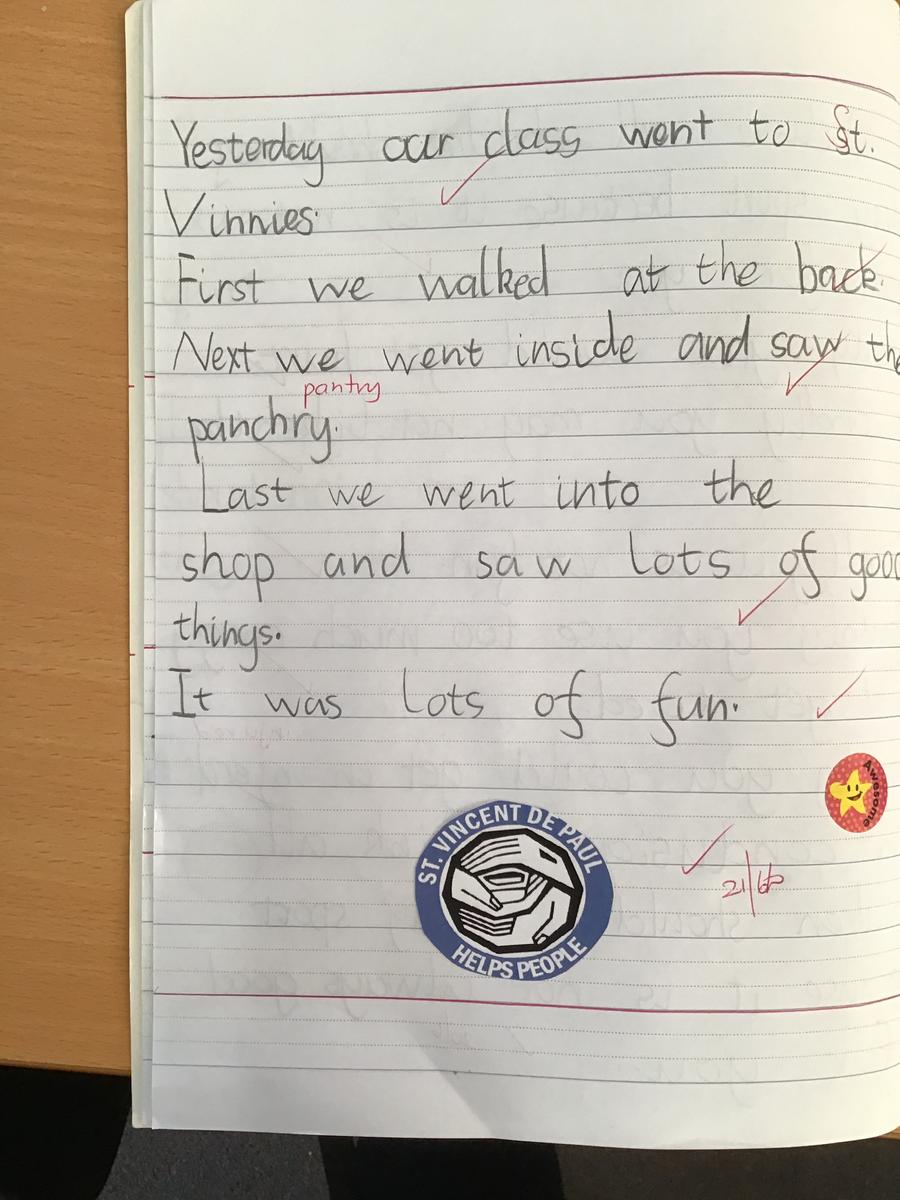 Yesterday our class went to St.
Vinnies.
First we walked at the back.
Next we went inside and saw the
pantry
panchry.
Last we went into the
shop and saw lots of good
things.
It was lots of fun.
Awesome
ST. VINCENT DE PAUL
HELPS PEOPLE